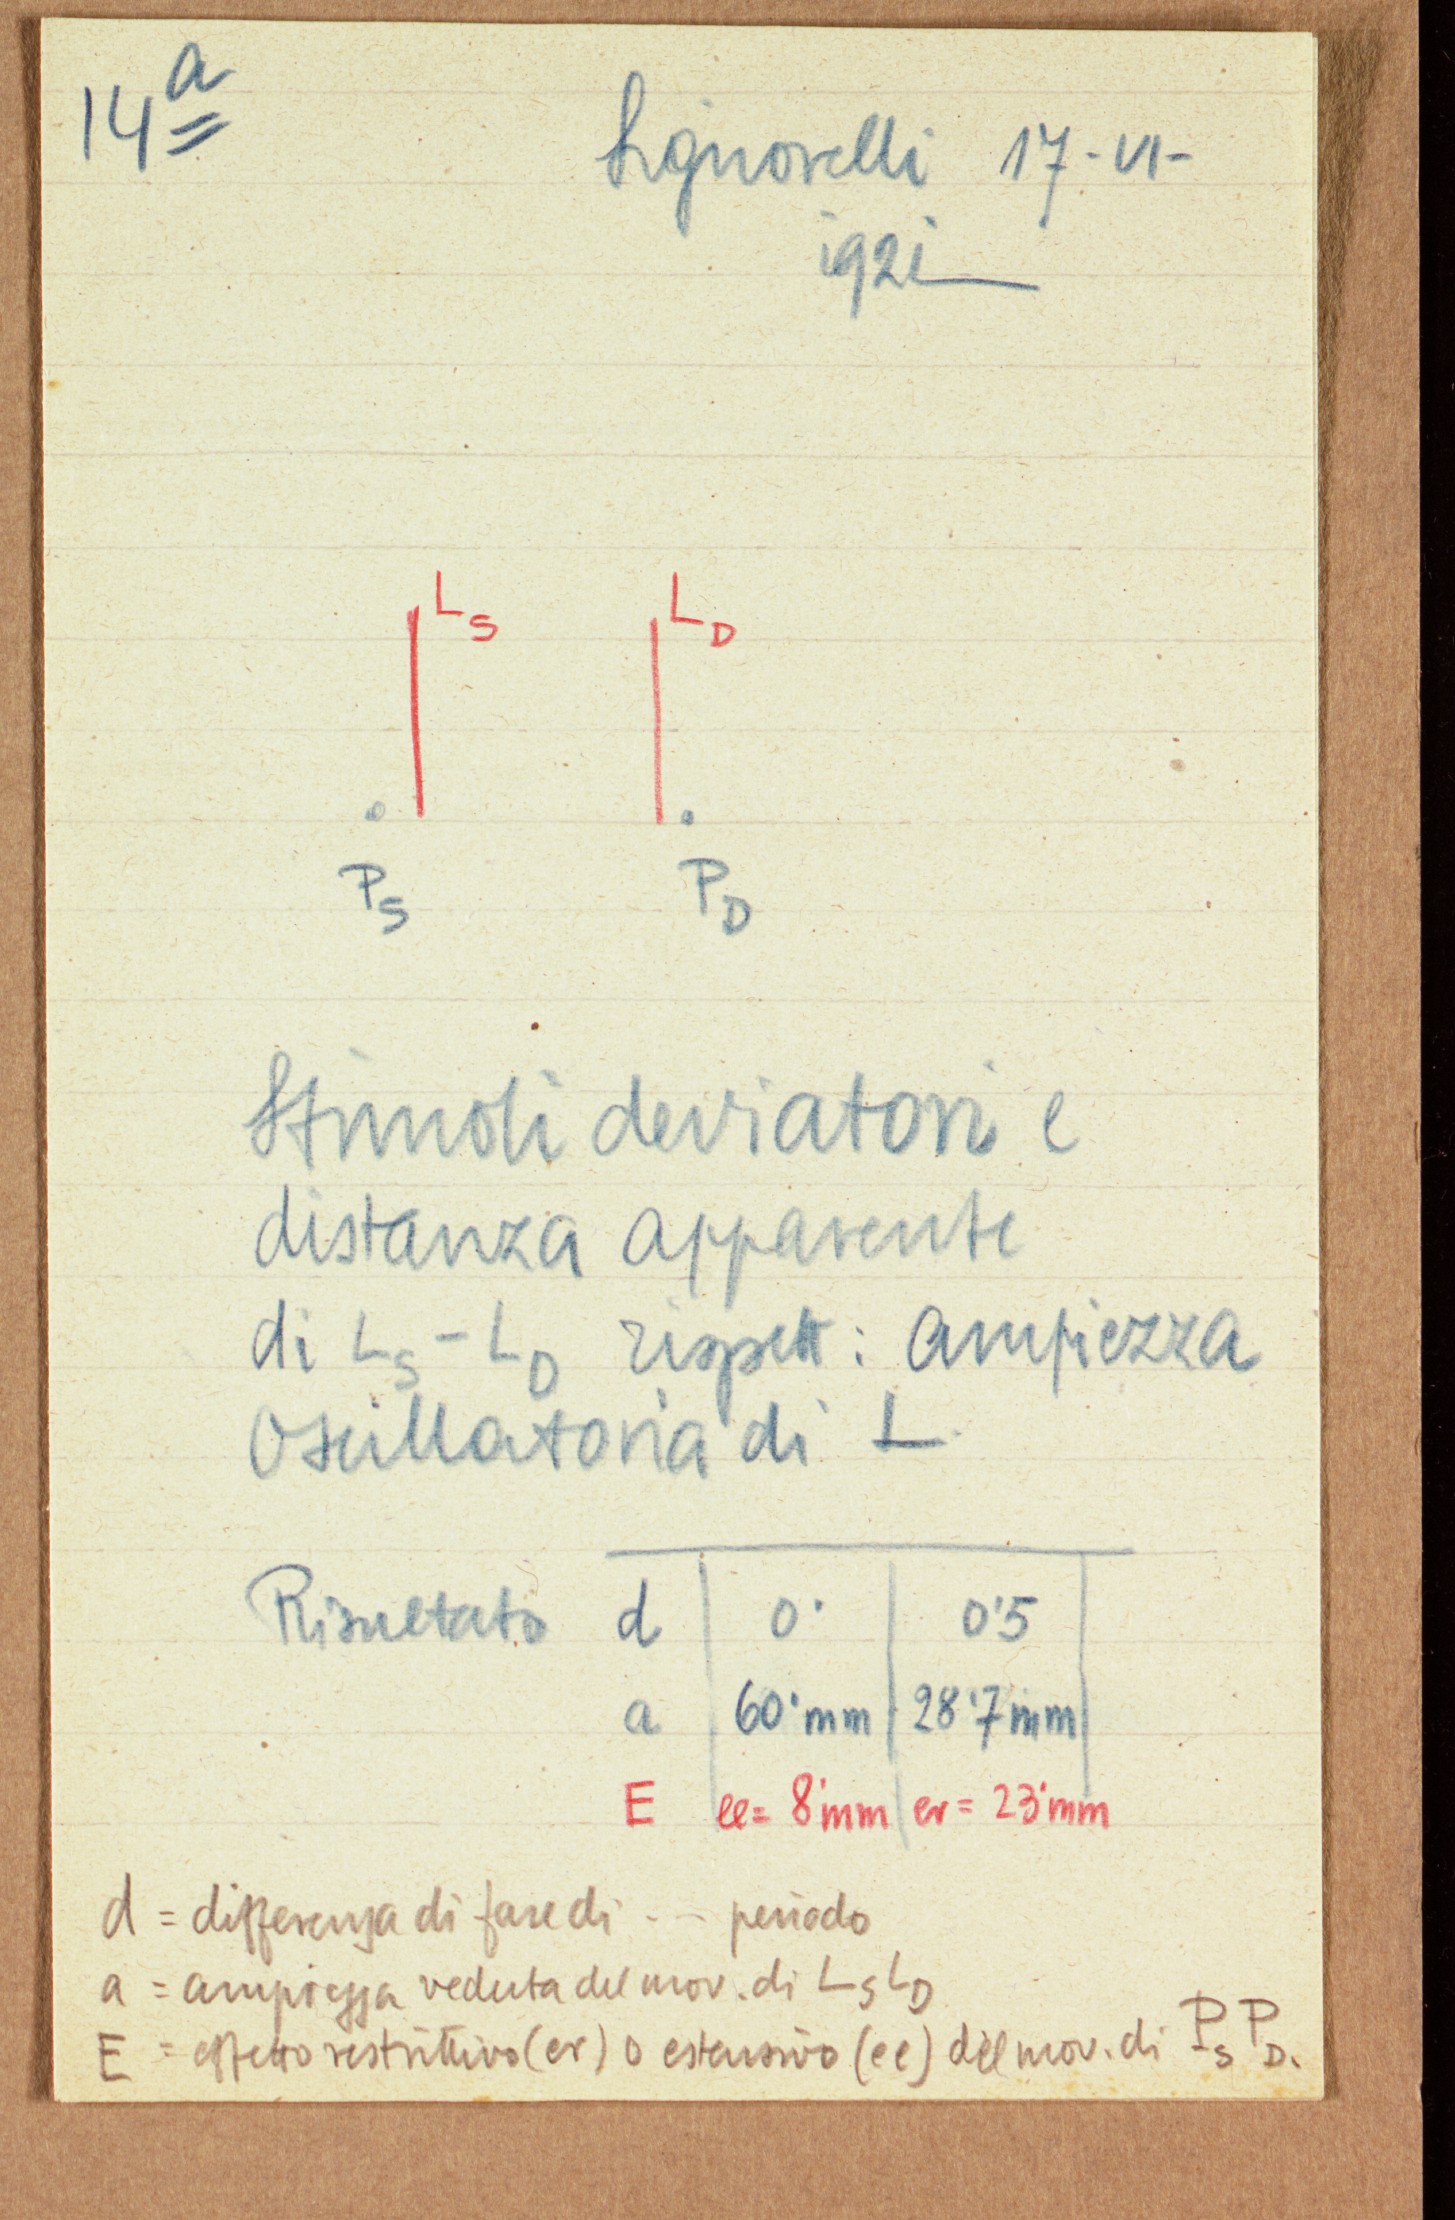 14ª
Signorelli 17-VI-
1921
L_S L_D
P_S P_D
Stimoli deviatori e
distanza apparente
di L_S - L_D rispett: ampiezza
oscillatoria di L
Risultato d 0· 0'5
a 60'mm 28'7mm
E ee= 8'mm er= 23'mm
d = differenza di fase di - - - periodo
a = ampiezza veduta del mov. di L_S L_D
E = effetto restrittivo (er) o estensivo (ee) del mov. di P_S P_D.